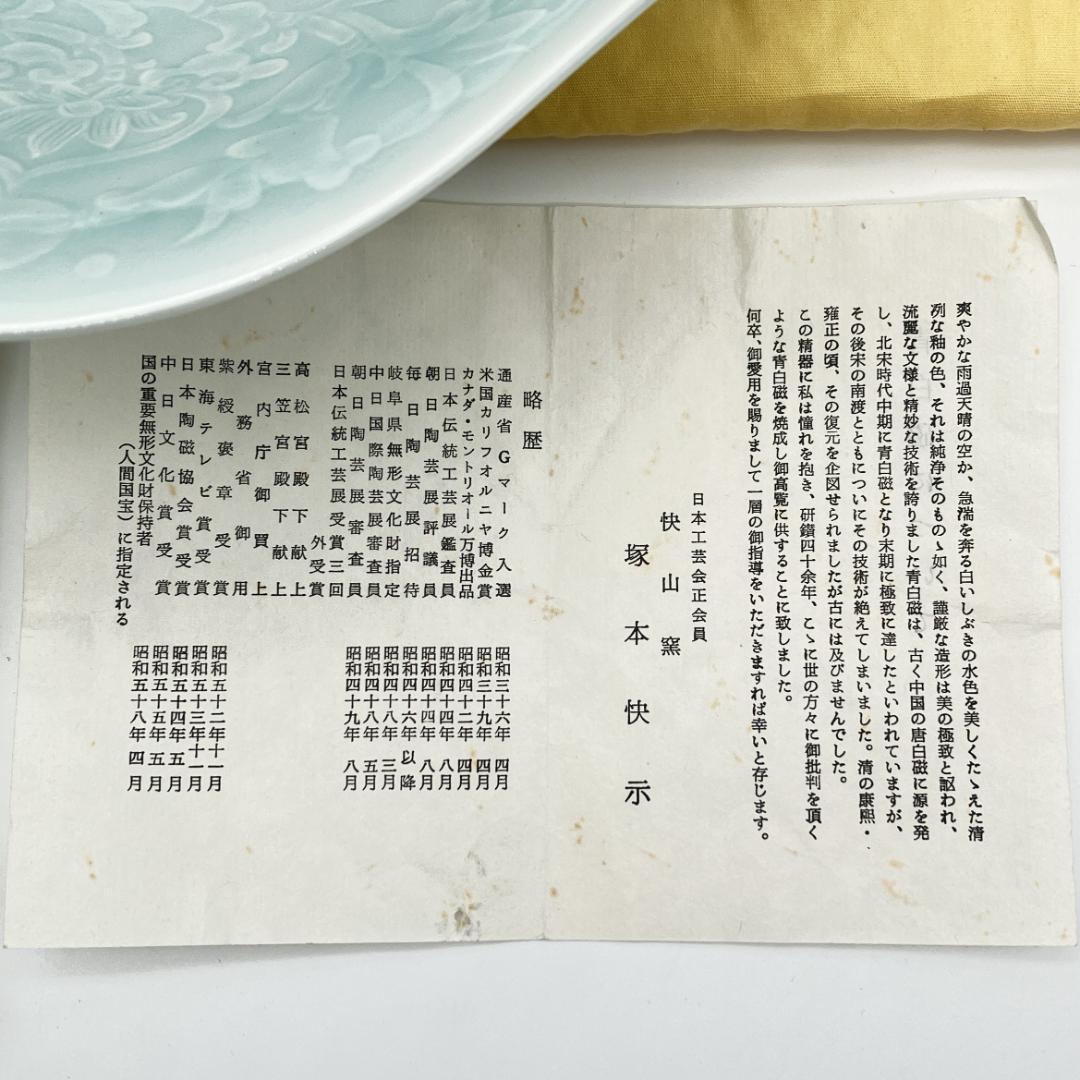 爽やかな雨過天晴の空か、急湍を奔る白いしぶきの水色を美しくたゝえた清
冽な釉の色、それは純浄そのものゝ如く、謹厳な造形は美の極致と謳われ、
流麗な文様と精妙な技術を誇りました青白磁は、古く中国の唐白磁に源を発
し、北宋時代中期に青白磁となり末期に極致に達したといわれていますが、
その後宋の南渡とともについにその技術が絶えてしまいました。清の康熙・
雍正の頃、その復元を企図せられましたが古には及びませんでした。
この精器に私は憧れを抱き、研鑽四十余年、こゝに世の方々に御批判を頂く
ような青白磁を焼成し御高覧に供することに致しました。
何卒、御愛用を賜りまして一層の御指導をいただきますれば幸いと存じます。
日本工芸会正会員
快山窯
塚本快示
略歴
通産省Gマーク入選 昭和三十六年四月
米国カリフオルニヤ博金賞 昭和三十九年四月
カナダ・モントリオール万博出品 昭和四十二年四月
日本伝統工芸展鑑査員 昭和四十四年八月
朝日陶芸展評議員 昭和四十四年八月
毎日陶芸展招待 昭和四十六年以降
岐阜県無形文化財指定 昭和四十八年三月
中日国際陶芸展審査員 昭和四十八年五月
朝日陶芸展審査員 昭和四十九年八月
日本伝統工芸展受賞三回
外受賞
高松宮殿下献上
三笠宮殿下献上
宮内庁御買上
外務省御用
紫綬褒章受賞 昭和五十二年十一月
東海テレビ賞受賞 昭和五十三年十一月
日本陶磁協会賞受賞 昭和五十四年五月
中日文化賞受賞 昭和五十五年五月
国の重要無形文化財保持者 昭和五十八年四月
(人間国宝)に指定される